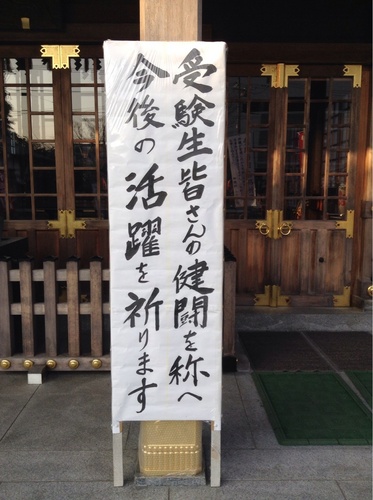 受験生皆さんの健闘を称へ
今後の活躍を祈ります